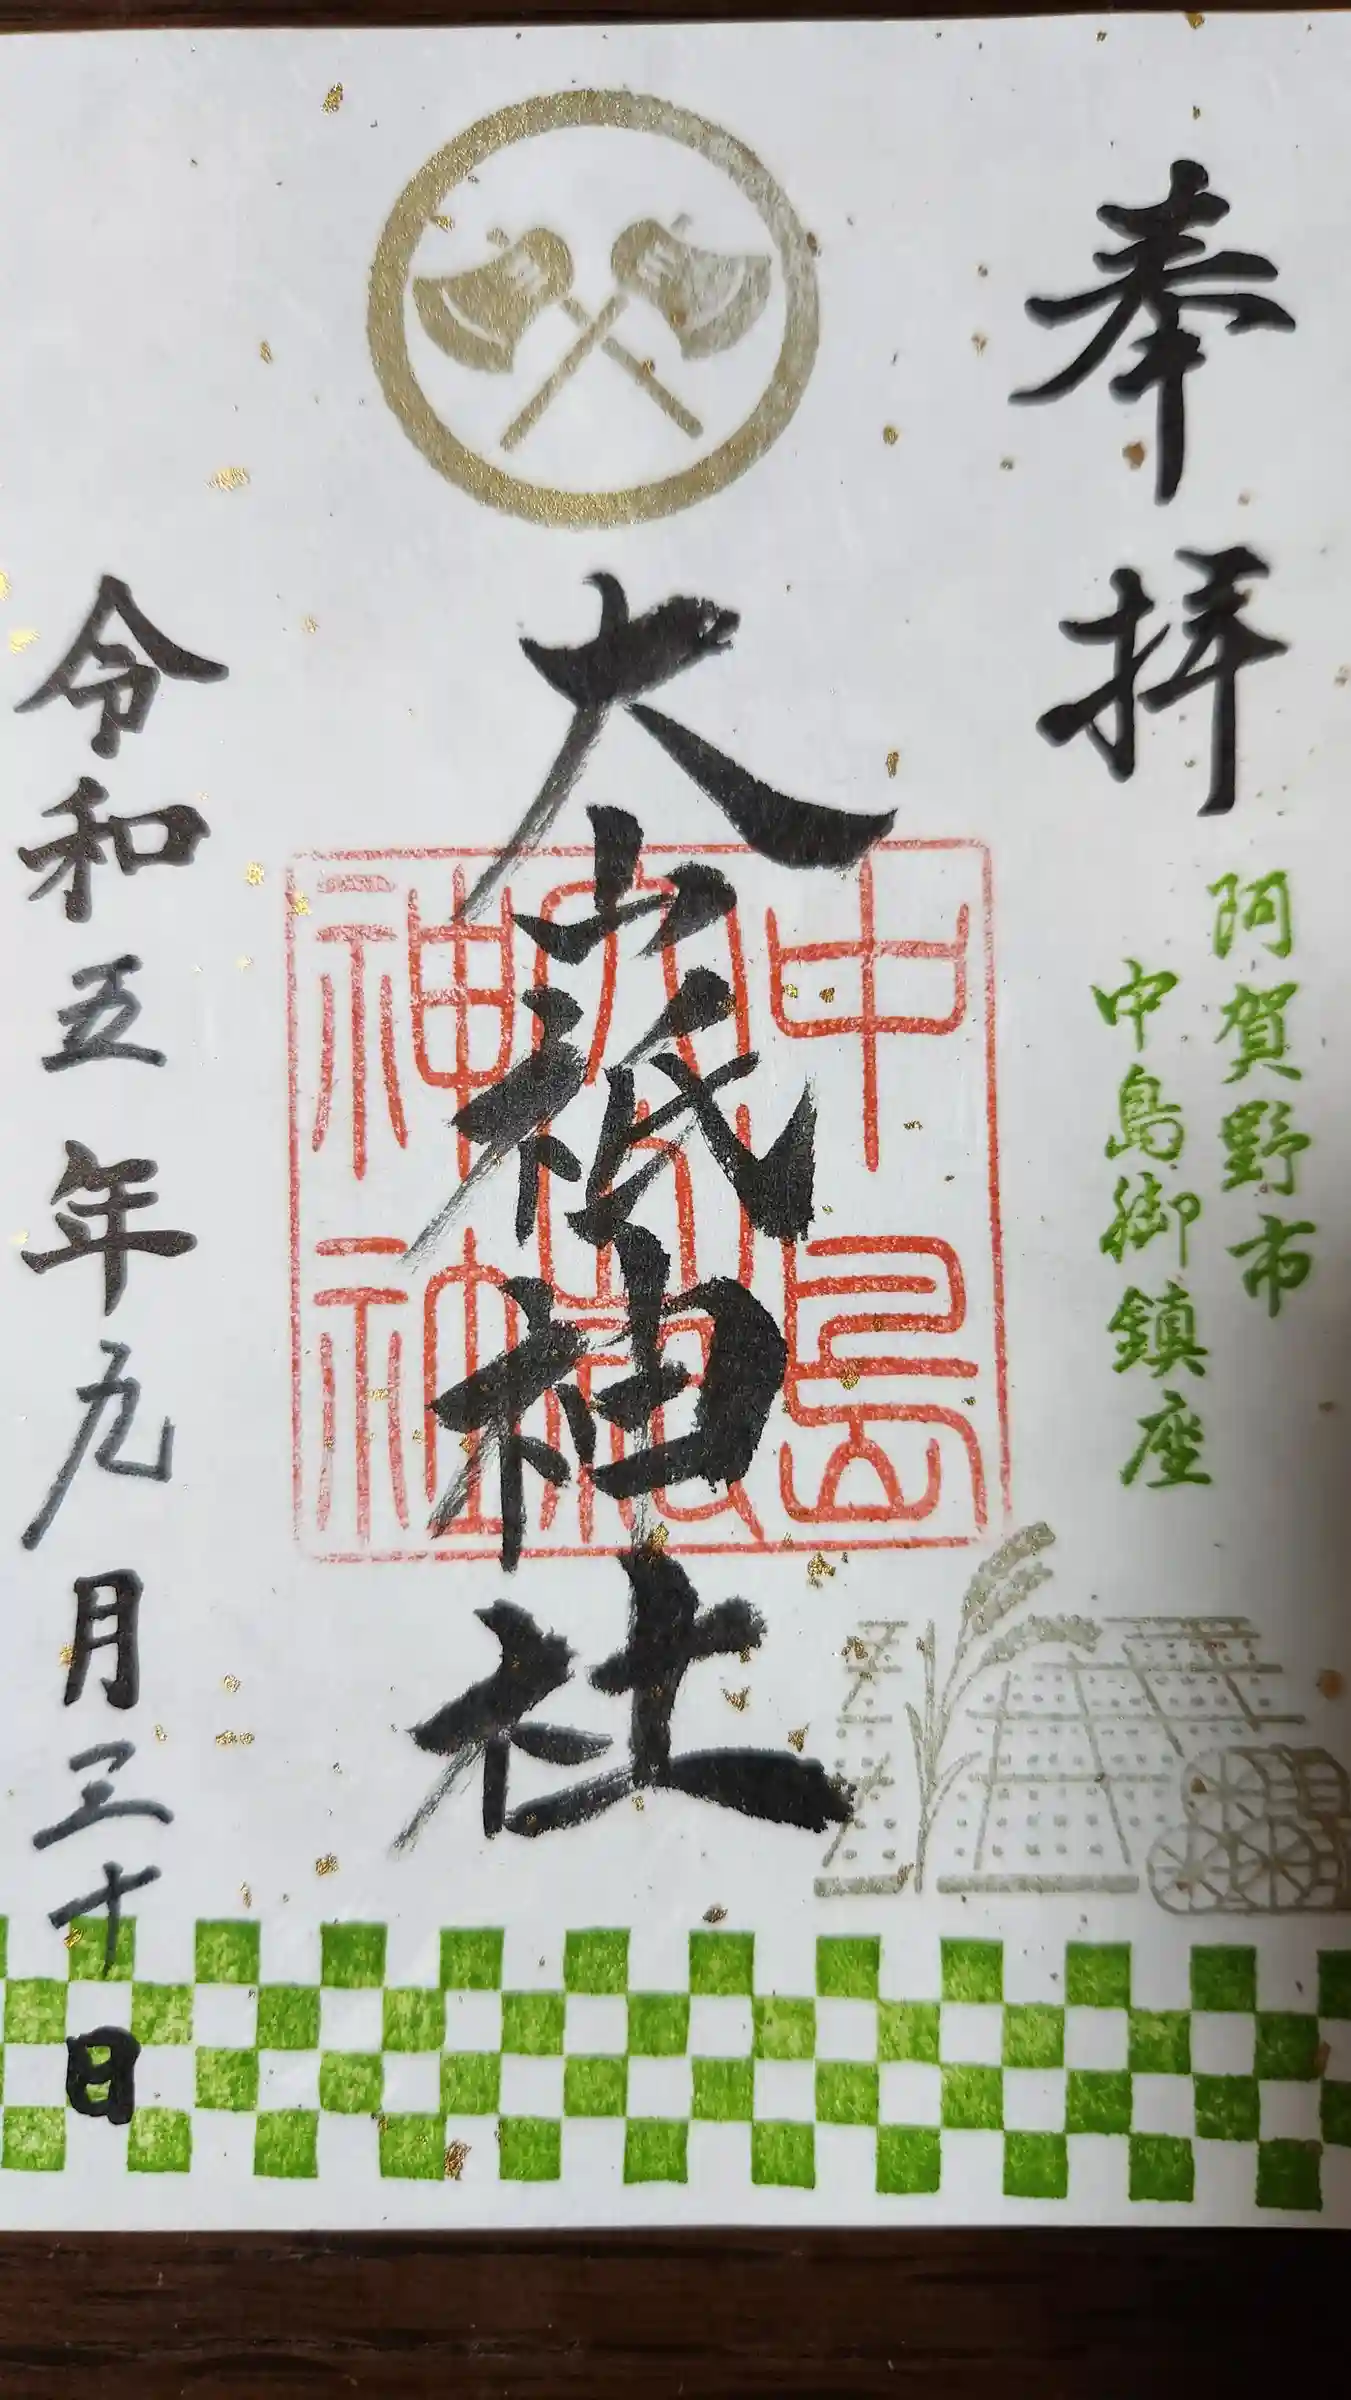 奉拝
阿賀野市
中島御鎮座
大山祇神社
中島
大山祇
神社
令和五年九月三十日